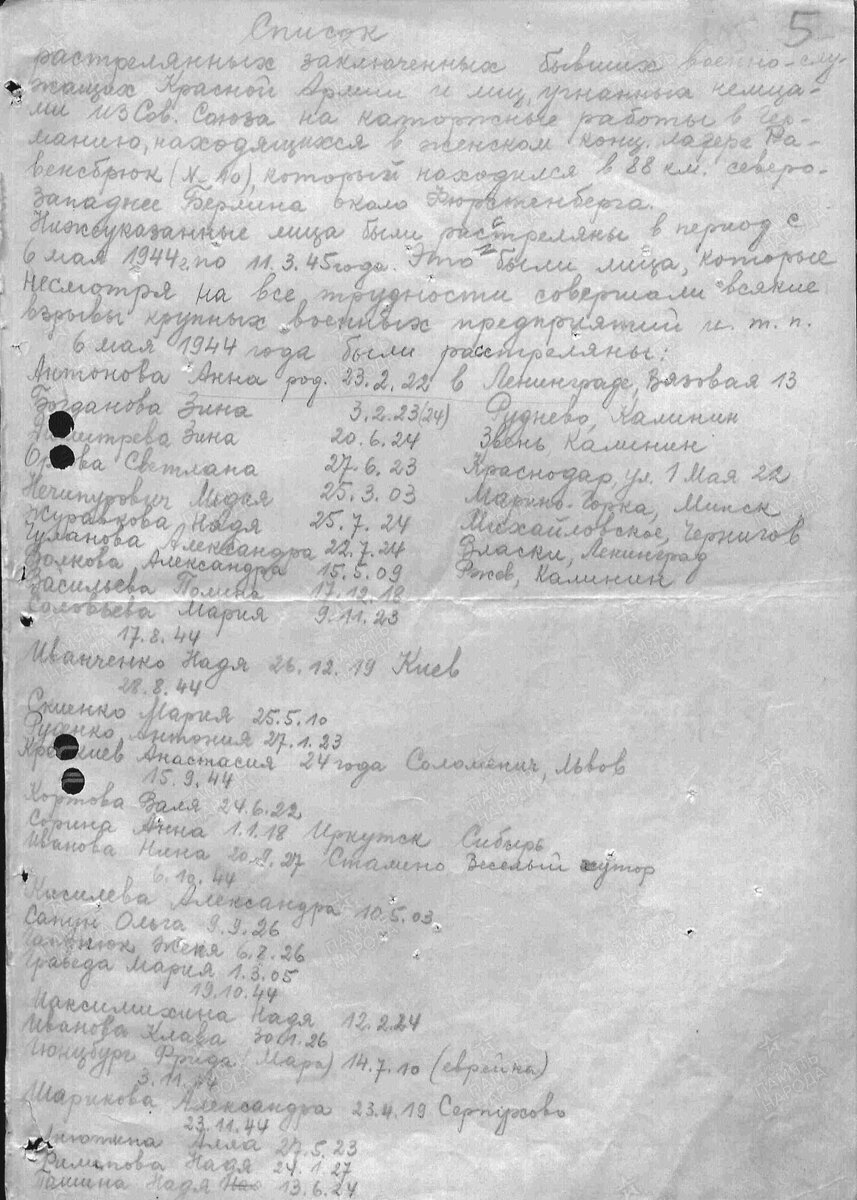 5
Список
растрелянных заключенных бывших военно-слу-
жащих Красной Армии и лиц, угнанных немца-
ми из Сов. Союза на каторжные работы в Гер-
манию, находящихся в женском конц. лагере Ра-
венсбрюк (N 10), который находился в 88 км. северо-
западнее Берлина около Фюрстенберга.
Нижеуказанные лица были растреляны в период с
6 мая 1944г. по 11.3.45 года. Это были лица, которые
несмотря на все трудности совершали всякие
взрывы крупных военных предприятий и. т. п.
6 мая 1944 года были растреляны:
Антонова Анна род. 23.2.22 в Ленинград, Вязовая 13
Богданова Зина 3.2.23(24) Руднево, Калинин
Зина 20.6.24 Калинин
Светлана 27.6.23 Краснодар, ул. 1 Мая 22
Нечипурович Лидия 25.3.03 Марино-Горка, Минск
Журавкова Надя 25.7.24 Михайловское, Чернигов
Александра 22.7.24 Власки, Ленинград
Волкова Александра 15.5.09 Ржев, Калинин
Васильева Полина 17.12.18
Соловьева Мария 9.11.23
17.8.44
Иванченко Надя 26.12.19 Киев
28.8.44
Скиенко Мария 25.5.10
Руденко Антония 27.1.23
Анастасия 24 года Соломенич, Львов
15.9.44
Кортова Валя 24.6.22
Сорина Анна 1.1.18 Иркутск Сибирь
Иванова Нина 20.9.27 Сталино Веселый хутор
6.10.44
Киселева Александра 10.5.03
Сапун Ольга 9.9.26
Женя 6.8.26
Мария 1.3.05
19.10.44
Максимихина Надя 12.2.24
Иванова Клава 30.1.26
Гюнцбург Фрида (Мара) 14.7.10 (еврейка)
3.11.44
Шарикова Александра 23.4.19 Серпухово
23.11.44
Алла 27.5.23
Филипова Надя 24.1.27
Надя 13.6.24
ПАМЯТЬ НАРОДА